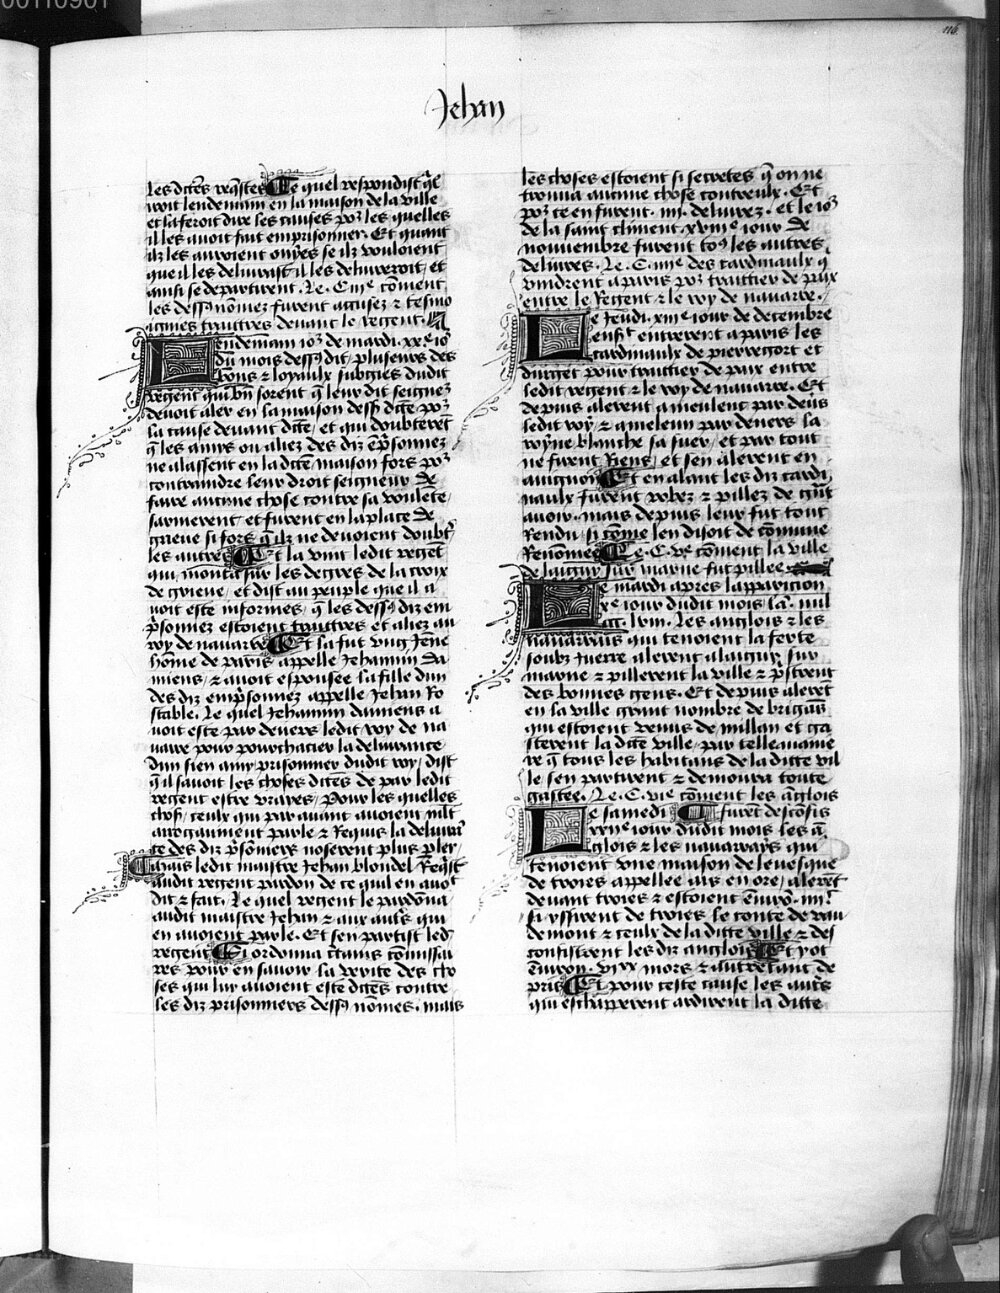 00110901
116
Jehan
les dictes req̄stes Le quel respondist q̄ le
roit lendemain en la maison de la ville
et la feroit dire les causes po2 les quelles
il les auoit fait emprisonner. Et quant
ilz les auroient ouyes se ilz vouloient
que il les deliurast il les deliureroit / et
ainsi se departirent . Le . C iiiie coment
les dessꝰ nōmez furent accusez ⁊ tesmo
ignies traittres deuant le regent .
Lendemain io2 de mardi . xxe io2
du mois dessꝰ dit / plusieurs des
bons ⁊ loyaulx subgies dudit
regent qui bn̄ sorent q̄ leur dit seigne2
deuoit aler en la maison dessꝰ dicte po2
la cause deuant dicte / et qui doubterēt
q̄ les amys ou aliez des diz ēp̄sonniez
ne alassent en la dicte maison fors po2
contraindre leur droit seigneur de
faire aucune chose contre sa voulete /
sarmerent / et furent en la place de
grieue si fors q̄ ilz ne deuoient doubt̄
les autres Et la vint ledit regēt
qui monta sur les degres de la croix
de grieue / et dist au peuple que il a
uoit este informes / q̄ les dessꝰ diz em
p̄sonniez estoient traittres et aliez au
roy de nauarre Et la fut vng Jēne
hōme de paris appelle Jehannin da
miens / ⁊ auoit espousee la fille dun
des diz emp̄sonniez appelle Jehan Ro
stable . Le quel Jehannin damiens a
uoit este par deuers ledit roy de na
uarre pour pourchacier la deliurance
dun sien amy prisonnier dudit roy / dist
q̄ il sauoit les choses dictes de par ledit
regent estre vrayes / Pour les quelles
chosꝰ / ceulx qui par auant auoient mlt̄
arrogaument parle ⁊ Requis la deliurā
ce des diz p̄sōniers noserent plus pler /
Mais ledit maistre Jehan blondel Req̄st
audit regent pardon de ce quil en auoit
dit ⁊ fait . Le quel regent le pardōna
audit maistre Jehan ⁊ aux aut̄s qui
en auoient parle . Et sen partist led̄
regent Si ordonna ctains cōmissai
res pour en sauoir la verite des cho
ses qui lui auoient este dictes contre
les diz prisonniers dessꝰ nōmes . mais
les choses estoient si secretes q̄ on ne
trouua aucune chose contreulx . Et
po2 ce en furent . iiii . deliurez . et le io2
de la saint climent . xxiiie iour de
nouuembre furent toꝰ les autres
deliures . Le . C . ve des cardinaulx q̄
vindrent a paris po2 traittier de paix
entre le Regent ⁊ le roy de nauarre .
Le Jeudi . xiiie iour de decembre
ensꝰ entrerent a paris les
cardinaulx de pierregort et
durgel pour traittier de paix entre
ledit regent ⁊ le roy de nauarre . Et
depuis alerent a meulent par deūs
ledit roy / ⁊ a meleun par deuers la
royne blanche sa suer / et par tout
ne firent Riens / et sen alerent en
auignon Et en alant les diz cardi
naulx furent robez ⁊ pillez de gn̄t
auoir . mais depuis leur fut tout
Rendu si cōme len disoit de cōmune
Renōmee Le . C . vie cōment la ville
de laigny sur marne fut pillee
Le mardi apres lapparicion
xe iour dudit mois lā . mil
ccc . lviii . Les anglois ⁊ les
nauarraiis qui tenoient la ferte
soubz Juerre alerent a laigny sur
marne ⁊ pillerent la ville ⁊ p̄strent
des bonnes gens . Et depuis alerēt
en la ville grant nombre de brigās
qui estoient venus de millan et ga
sterent la dicte ville / par telle manie
re q̄ tous les habitans de la dicte vil
le sen partirent ⁊ demoura toute
gastee . Le . C . viie cōment les āglois
Le samedi furēt descōfis
xxiie iour dudit mois les ā
glois ⁊ les nauarrays qui
tenoient vne maison de leuesque
de troies appellee ais en ore / alerēt
deuant troies ⁊ estoient ēuirō . iiiic
si yssirent de troies le conte de vau
demont ⁊ ceulx de la dicte ville ⁊ des
confistrent les diz anglois Et y ot
ēuiron . vixx mors ⁊ autretant de
pris Et pour ceste cause les aut̄s
qui eschapperent ardirent la dicte